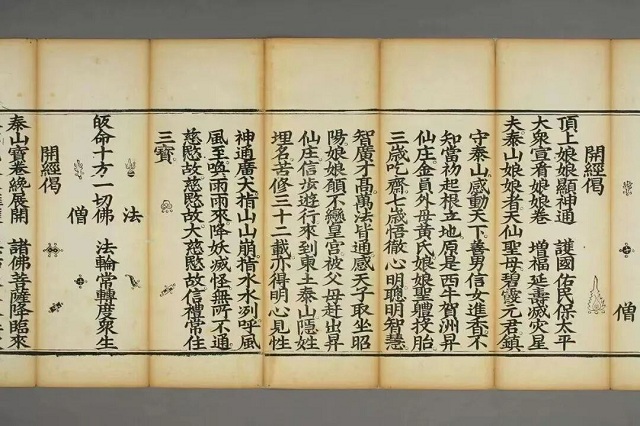 僧
開經偈
頂上娘娘顯神通 護國佑民保太平
大衆宣看娘娘卷 增福延壽滅灾星
夫泰山娘娘者天仙聖母碧霞元君鎮
守泰山感動天下善男信女進香不
知當初起根立地原是西牛賀洲昇
仙庄金員外母黃氏娘娘聖體投胎
三歲吃齋七歲悟徹心明聰明智慧
智廣才高萬法皆通感天子取坐昭
陽娘娘願不戀皇宮被父母赶出昇
仙庄信步遊行來到東土泰山隱姓
埋名苦修三十二載亦得明心見性
神通廣大指山山崩指水水列呼風
風至喚雨雨來降妖滅怪無所不通
慈愍故慈愍故大慈愍故信禮常住
三寶
法
皈命十方一切佛 法輪常轉度衆生
僧
開經偈
泰山寶卷纔展開 諸佛菩薩降臨來